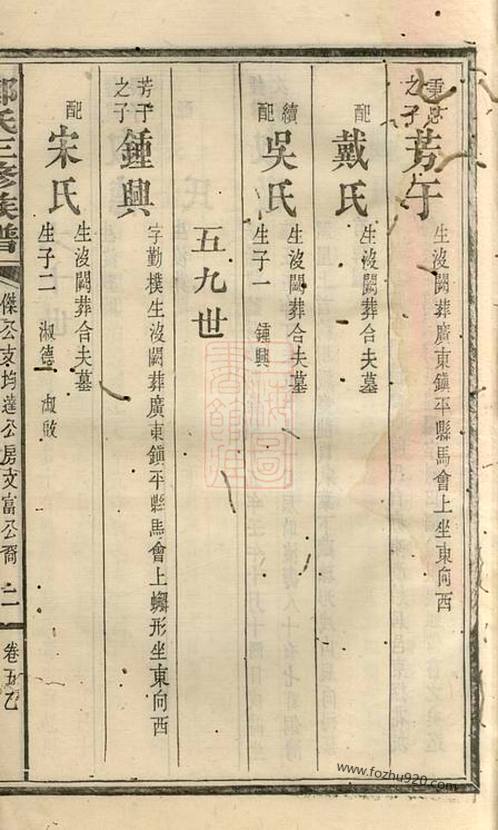 之子 芳午 生沒闕葬廣東鎮平縣馬會上坐東向西
配 戴氏 生沒闕葬合夫墓
續配 吳氏 生沒闕葬合夫墓
生子一 鍾興
五九世
芳午之子 鍾興 字勤樸生沒闕葬廣東鎮平縣馬會上螂形坐東向西
配 宋氏 生沒闕葬合夫墓
生子二 淑德 淑啟
氏三修族譜 傑公支均達公房文富公裔 二 卷五乙
www.fozhu920.com